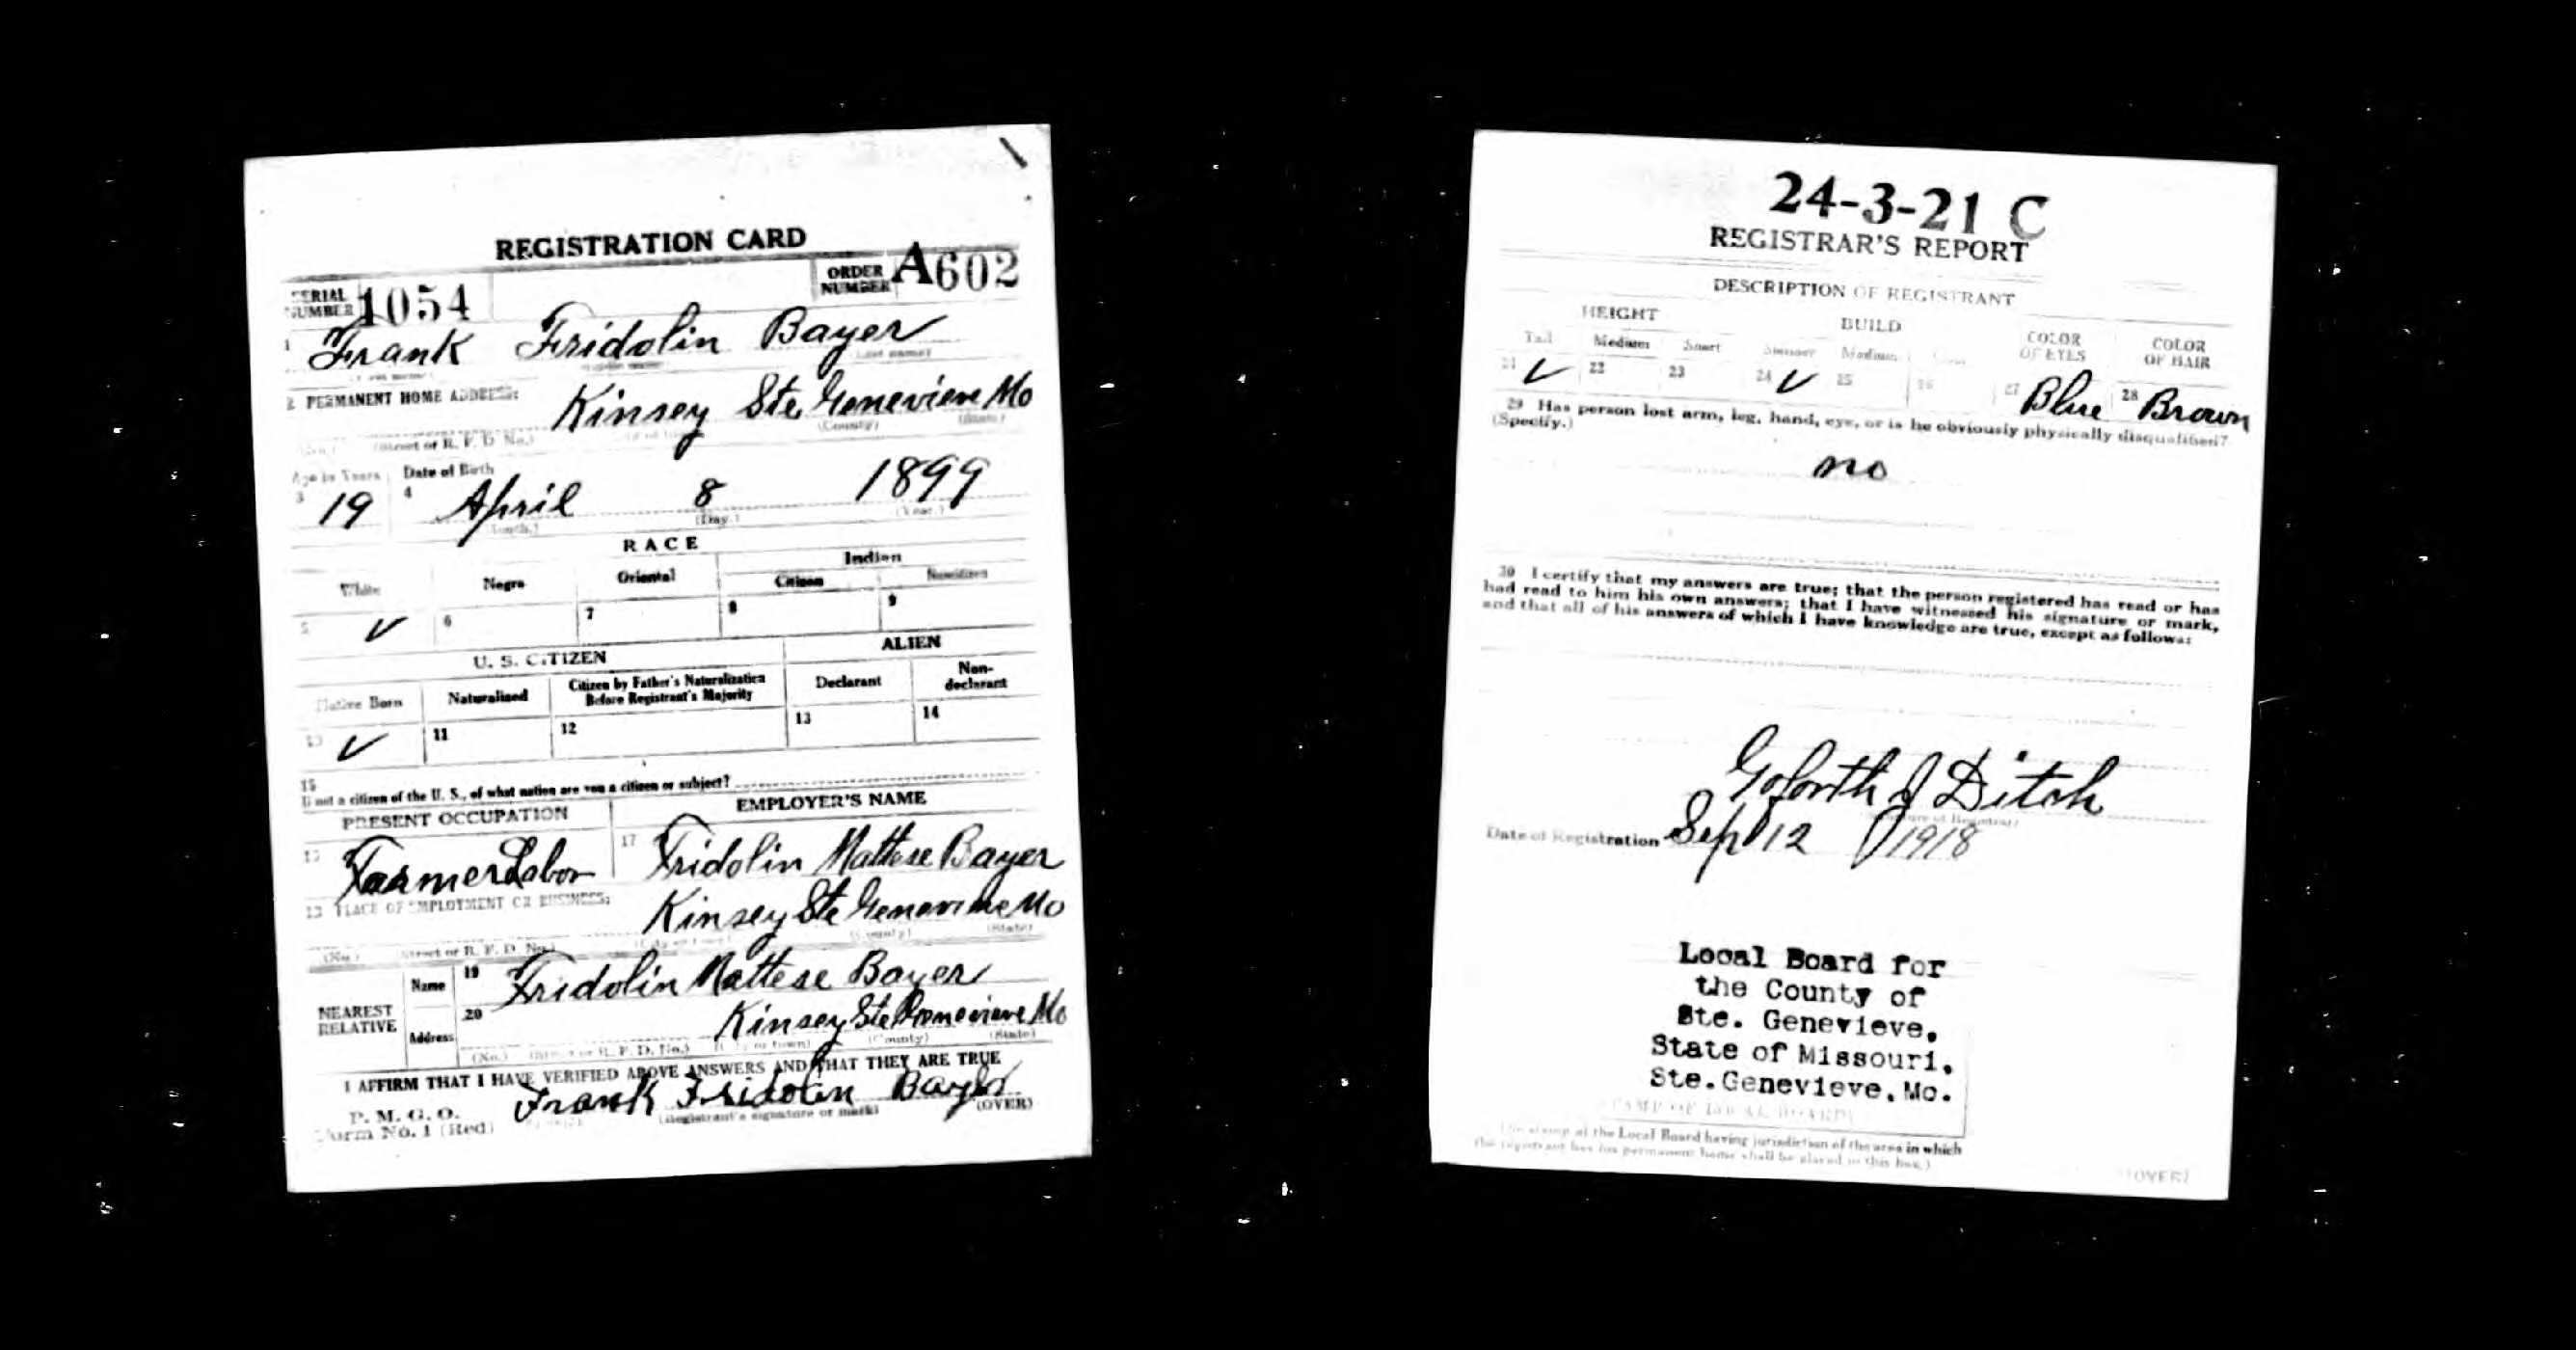 REGISTRATION CARD
SERIAL NUMBER 1054 ORDER NUMBER A602
1 Frank Fridolin Bayer
(Last name)
2 PERMANENT HOME ADDRESS:
Kinsey Ste Genevieve Mo
(No.) (Street or R. F. D. No.) (County) (State)
Age in Years Date of Birth
3 19 4 April 8 1899
(Month.) (Day.) (Year.)
RACE
White Negro Oriental Indian
Citizen Noncitizen
5 ✓ 6 7 8 9
U. S. CITIZEN ALIEN
Native Born Naturalized Citizen by Father's Naturalization Before Registrant's Majority Declarant Non-declarant
10 ✓ 11 12 13 14
15
If not a citizen of the U. S., of what nation are you a citizen or subject?
PRESENT OCCUPATION EMPLOYER'S NAME
16 Farmer Labor 17 Fridolin Mattese Bayer
18 PLACE OF EMPLOYMENT OR BUSINESS:
Kinsey Ste Genevieve Mo
(No.) (Street or R. F. D. No.) (City or town) (County) (State)
NEAREST RELATIVE
Name 19 Fridolin Mattese Bayer
Address 20 Kinsey Ste Genevieve Mo
(No.) (Street or R. F. D. No.) (City or town) (County) (State)
I AFFIRM THAT I HAVE VERIFIED ABOVE ANSWERS AND THAT THEY ARE TRUE
P. M. G. O.
Form No. 1 (Red)
Frank Fridolin Bayer
(Registrant's signature or mark) (OVER)
24-3-21 C
REGISTRAR'S REPORT
DESCRIPTION OF REGISTRANT
HEIGHT BUILD COLOR OF EYES COLOR OF HAIR
Tall Medium Short Slender Medium
21 ✓ 22 23 24 ✓ 25 26 27 Blue 28 Brown
29 Has person lost arm, leg, hand, eye, or is he obviously physically disqualified?
(Specify.)
no
30 I certify that my answers are true; that the person registered has read or has
had read to him his own answers; that I have witnessed his signature or mark,
and that all of his answers of which I have knowledge are true, except as follows:
Goforth J Ditch
(Signature of Registrar)
Date of Registration Sept 12 1918
Local Board for
the County of
Ste. Genevieve,
State of Missouri.
Ste. Genevieve, Mo.
(STAMP OF LOCAL BOARD)
(The stamp of the Local Board having jurisdiction of the area in which
the registrant has his permanent home shall be placed in this box.)
(OVER)